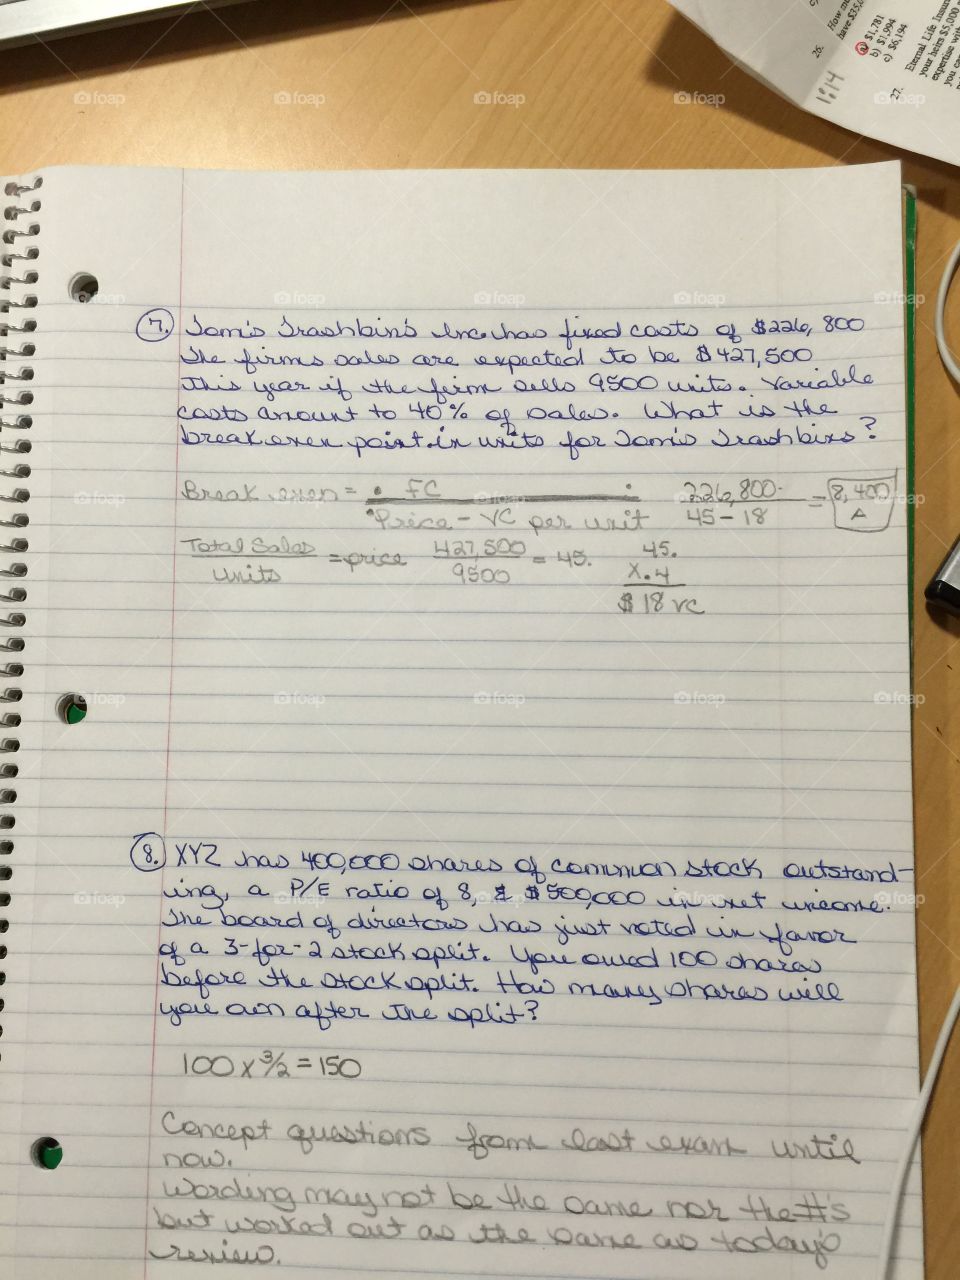 26. How mu
have $35,0
a) $1,781
b) $1,994
c) $6,194
1:14
27. Eternal Life Insur
your heirs $5,000
expertise with
you can
7. Tom's Trashbin's Inc. has fixed costs of $226,800
The firms sales are expected to be $427,500
This year if the firm sells 9500 units. Variable
costs amount to 40% of sales. What is the
breakeven point in units for Tom's Trashbins?
Break even = FC
Price - VC per unit
226,800
45-18
= 8,400
A
Total Sales
units
= price
427,500
9500
= 45.
45.
x.4
$18 VC
8. XYZ has 400,000 shares of common stock outstand-
ing, a P/E ratio of 8, & $500,000 in net income.
The board of directors has just voted in favor
of a 3-for-2 stock split. You owed 100 shares
before the stock split. How many shares will
you own after the split?
100 x 3/2 = 150
Concept questions from last exam until
now.
Wording may not be the same nor the #'s
but worked out as the same as today's
review.
foap